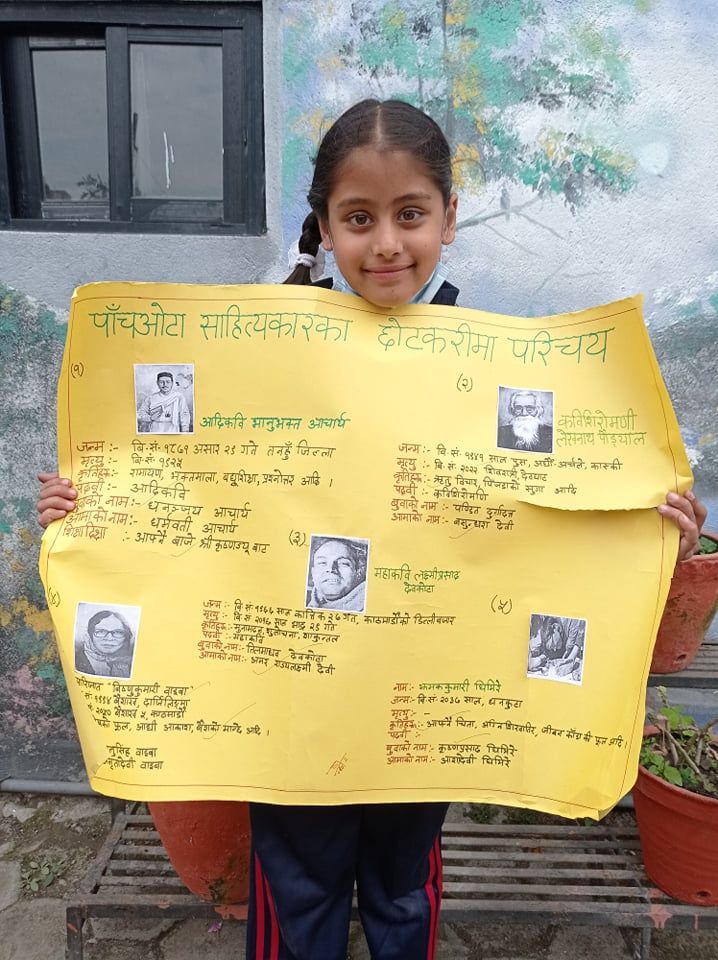 पाँचओटा साहित्यकारका छोटकरीमा परिचय
(१)
आदिकवि भानुभक्त आचार्य
जन्म :- बि.सं. १८७१ असार २९ गते तनहुँ जिल्ला
मृत्यु :- बि.सं. १९२५
कृतिहरू :- रामायण, भक्तमाला, बधुशिक्षा, प्रश्नोत्तर आदि ।
पदवी :- आदिकवि
बुवाको नाम :- धनञ्जय आचार्य
आमाको नाम :- धर्मवती आचार्य
शिक्षादिक्षा :- आफ्नै बाजे श्रीकृष्णज्यू बाट
(२)
कविशिरोमणी
लेखनाथ पौड्याल
जन्म :- बि.सं. १९४१ साल पुस, अर्घौ-अर्चले, कास्की
मृत्यु :- बि.सं. २०२२ देवघाट
कृतिहरू :- ऋतु विचार, पिंजडाको सुगा आदि
पदवी :- कविशिरोमणि
बुवाको नाम :- पण्डित दुर्गादत्त
आमाको नाम :- बसुन्धरा देवी
(३)
महाकवि लक्ष्मीप्रसाद
देवकोटा
जन्म :- बि.सं. १९६६ साल कात्तिक २७ गते, काठमाडौंको डिल्लीबजार
मृत्यु :- बि.सं. २०१६ साल भाद्र २९ गते
कृतिहरू :- मुनामदन, सुलोचना, शाकुन्तल
पदवी :- महाकवि
बुवाको नाम :- तिलमाधव देवकोटा
आमाको नाम :- अमर राज्यलक्ष्मी देवी
(४)
पारिजात "बिष्णुकुमारी वाइबा"
सं. १९९४ बैशाख, दार्जिलिङमा
सं. २०५० बैशाख ५, काठमाडौं
फूल, आधी आकाश, बैंशको मान्छे आदि ।
वाइबा
वाइबा
(५)
नाम :- झमककुमारी घिमिरे
जन्म :- बि.सं. २०३७ साल, धनकुटा
मृत्यु :- -
कृतिहरू :- आफ्नै चिता, अग्निशिखातिर, जीवन काँडा कि फूल आदि ।
पदवी :-
बुवाको नाम :- कृष्णप्रसाद घिमिरे
आमाको नाम :- आशादेवी घिमिरे